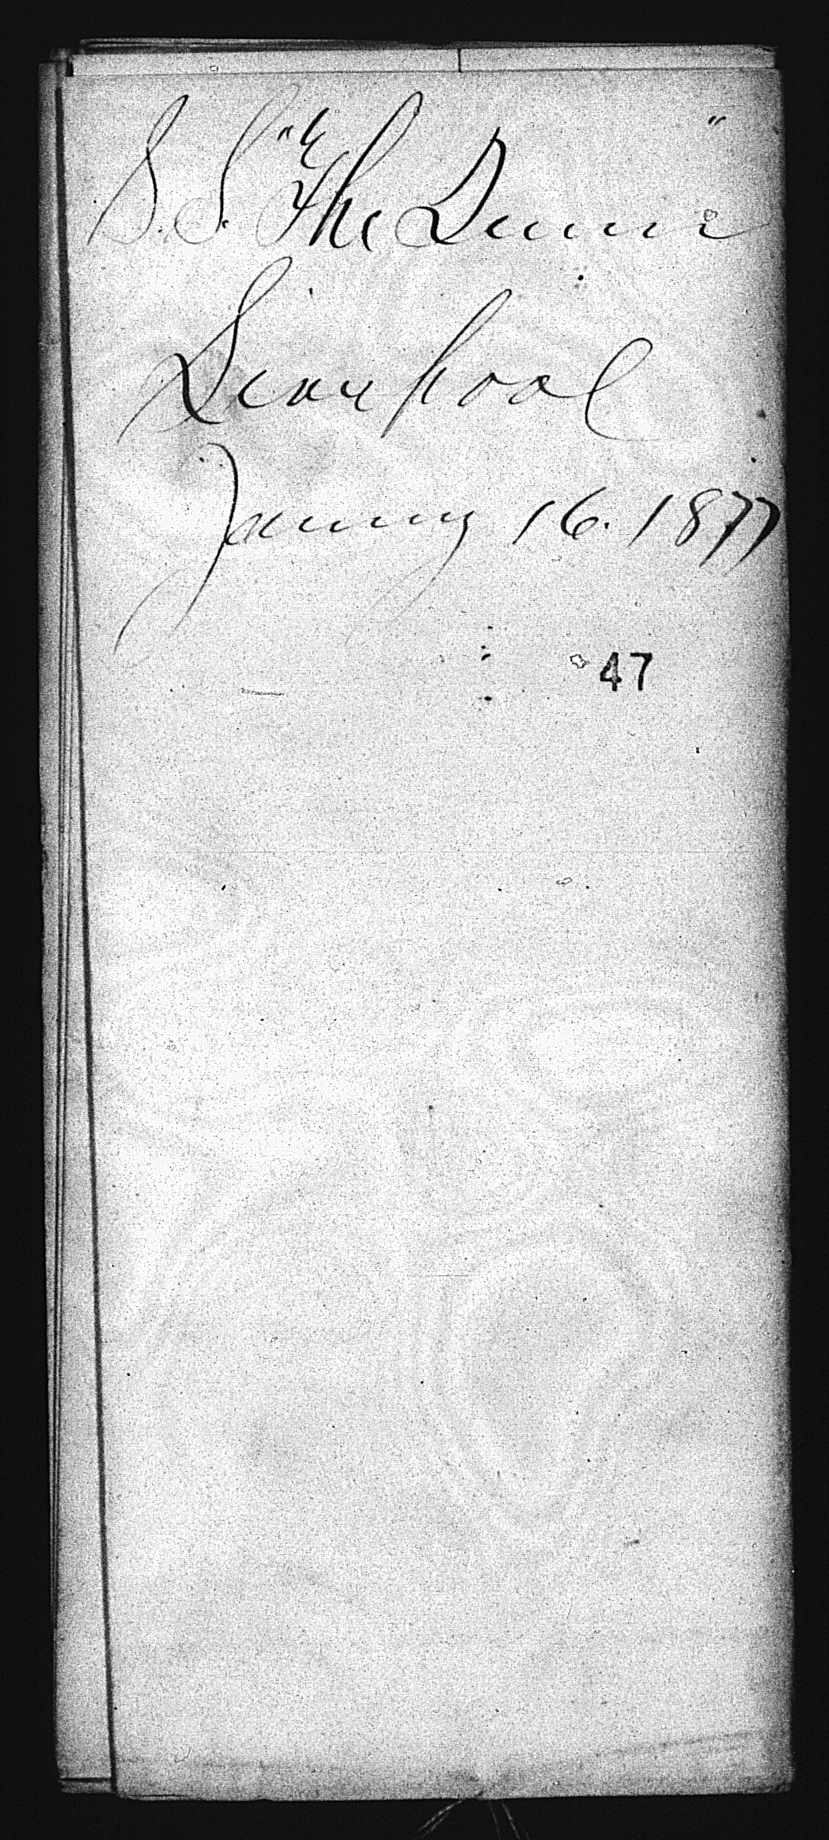 S.S. "The Queen"
Liverpool
January 16. 1877
47